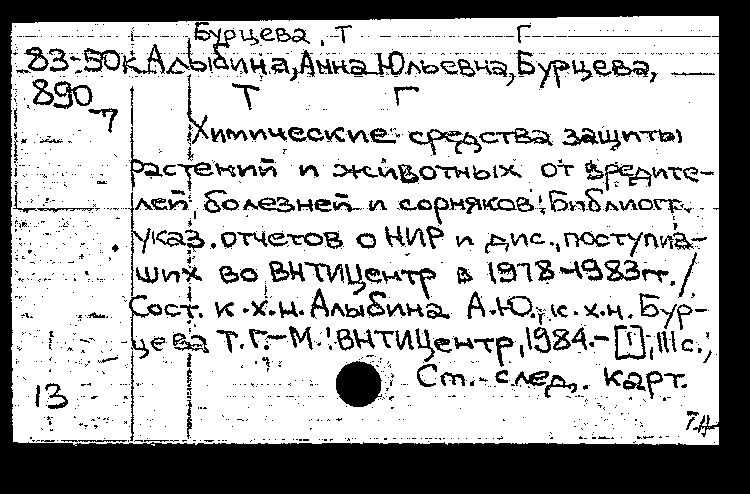 Бурцева, Т Г
83-50к Алыбина, Анна Юльевна, Бурцева,
890-7 Т Г
Химические средства защиты
растений и животных от вредите-
лей болезней и сорняков: Библиогр.
указ. отчетов о НИР и дис., поступив-
ших во ВНТИЦентр в 1978-1983гг. /
Сост. к.х.н. Алыбина А.Ю., к.х.н. Бур-
цева Т.Г.-М.: ВНТИЦентр, 1984.-[1], III с.,
См. след. карт.
13